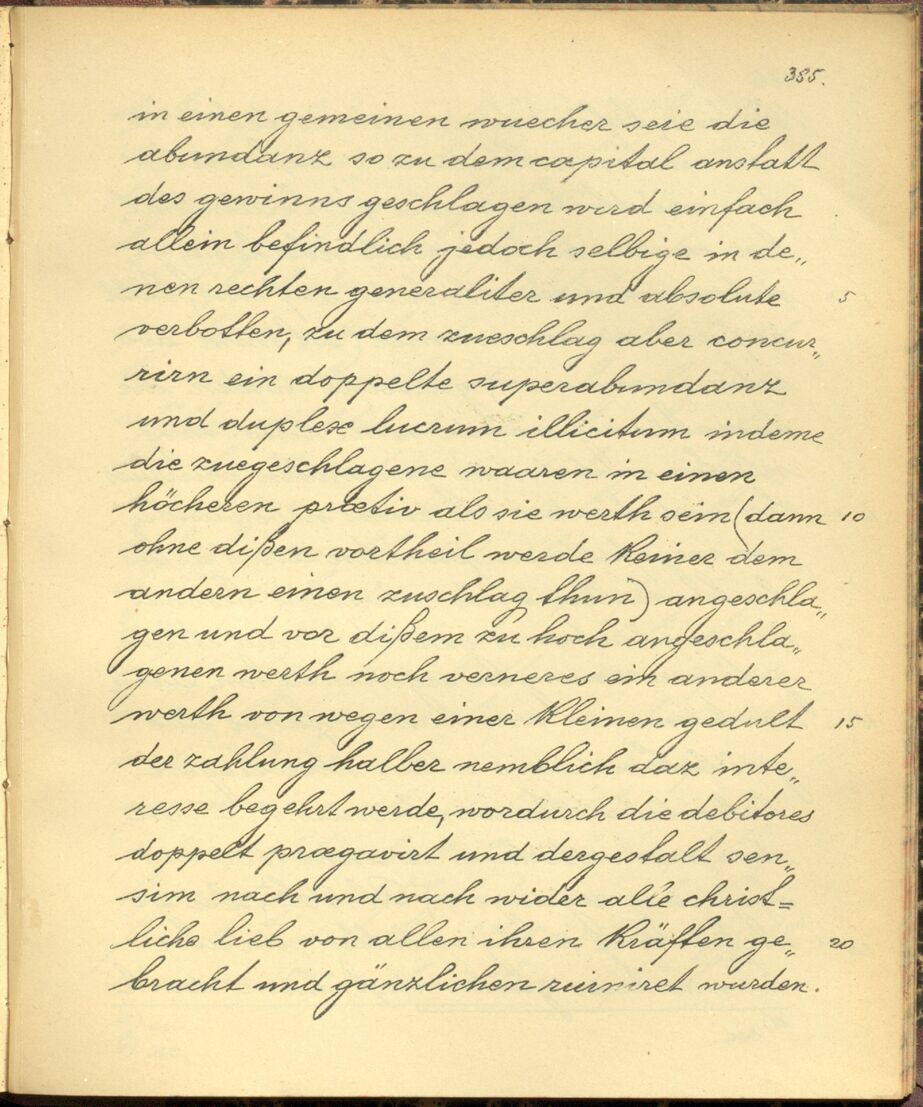 385.
in einen gemeinen wuecher seie die
abundanz so zu dem capital anstatt
des gewinns geschlagen wird einfach
allein befindlich jedoch selbige in de„
nen rechten generaliter und absolute 5
verbotten, zu dem zueschlag aber concur„
rirn ein doppelte superabundanz
und duplex lucrum illicitum indeme
die zuegeschlagene waaren in einen
höcheren prætiv als sie werth sein (dann 10
ohne dißen vortheil werde keiner dem
andern einen zuschlag thun) angeschla„
gen und vor dißem zu hoch angeschla„
genen werth noch verneres ein anderer
werth von wegen einer kleinen gedult 15
der zahlung halber nemblich daz inte„
resse begehrt werde, wordurch die debitores
doppelt prægavirt und dergestalt sen„
sim nach und nach wider alle christ=
liche lieb von allen ihren Kräften ge„ 20
bracht und gänzlichen ruiniret wurden.